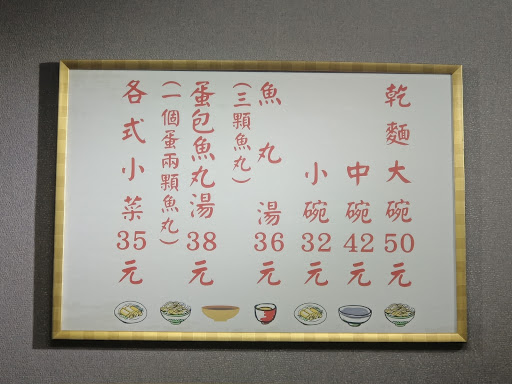 乾麵大碗50元
中碗42元
小碗32元
魚丸湯36元
(三顆魚丸)
蛋包魚丸湯38元
(一個蛋兩顆魚丸)
各式小菜35元